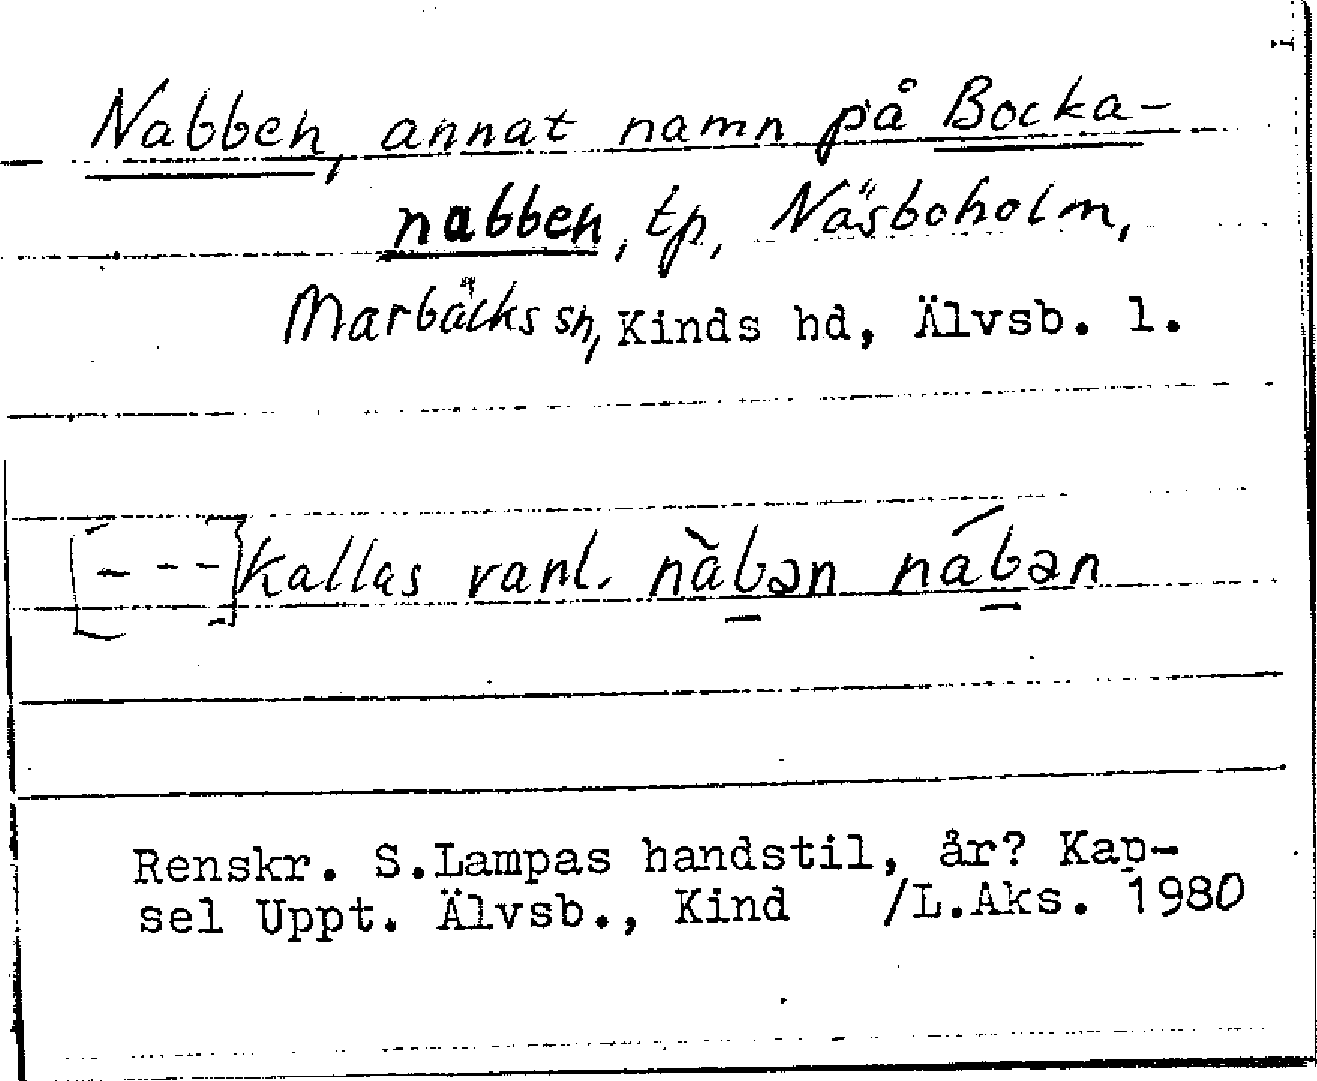 Nabben, annat namn på Bocka-
nabben, tp, Näsboholm,
Marbäcks sn, Kinds hd, Älvsb. l.
[---] Kallas vanl. nàb̲ən náb̲ən
Renskr. S.Lampas handstil, år? Kap-
sel Uppt. Älvsb., Kind /L.Aks. 1980